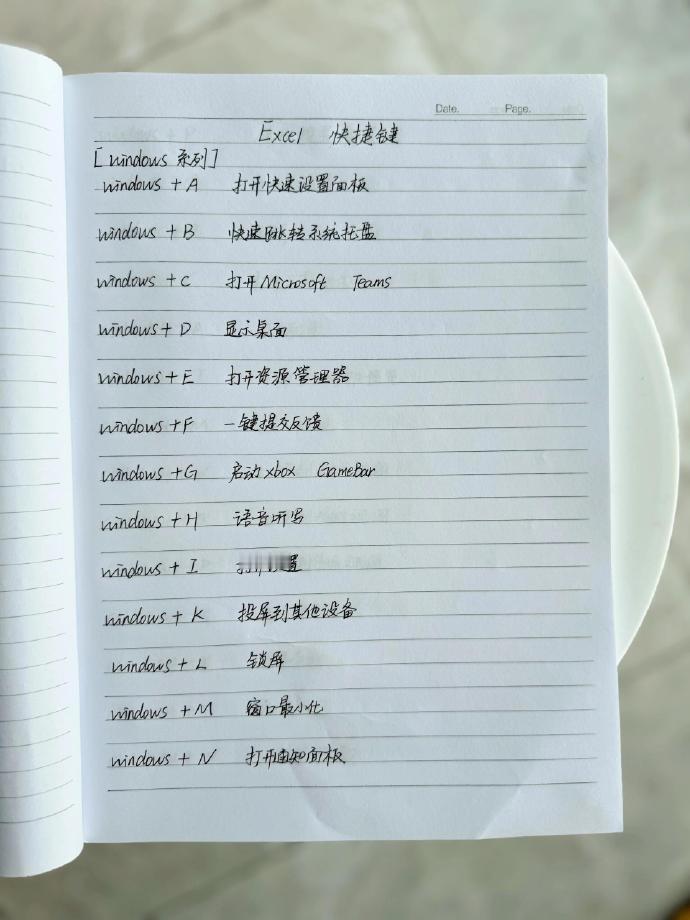 Date. Page.
Excel 快捷键
[windows 系列]
windows + A 打开快速设置面板
windows + B 快速跳转系统托盘
windows + C 打开Microsoft Teams
windows + D 显示桌面
windows + E 打开资源管理器
windows + F 一键提交反馈
windows + G 启动xbox GameBar
windows + H 语音听写
windows + I 置
windows + K 投屏到其他设备
windows + L 锁屏
windows + M 窗口最小化
windows + N 打开通知面板